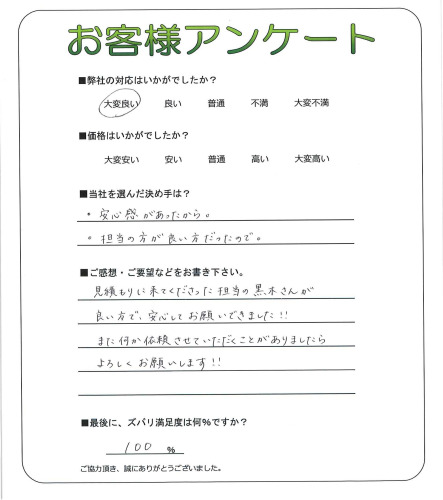 お客様アンケート
■弊社の対応はいかがでしたか?
大変良い 良い 普通 不満 大変不満
■価格はいかがでしたか?
大変安い 安い 普通 高い 大変高い
■当社を選んだ決め手は?
・安心感があったから。
・担当の方が良い方だったので。
■ご感想・ご要望などをお書き下さい。
見積もりに来てくださった担当の黒木さんが
良い方で、安心してお願いできました!!
また何か依頼させていただくことがありましたら
よろしくお願いします!!
■最後に、ズバリ満足度は何%ですか?
100 %
ご協力頂き、誠にありがとうございました。